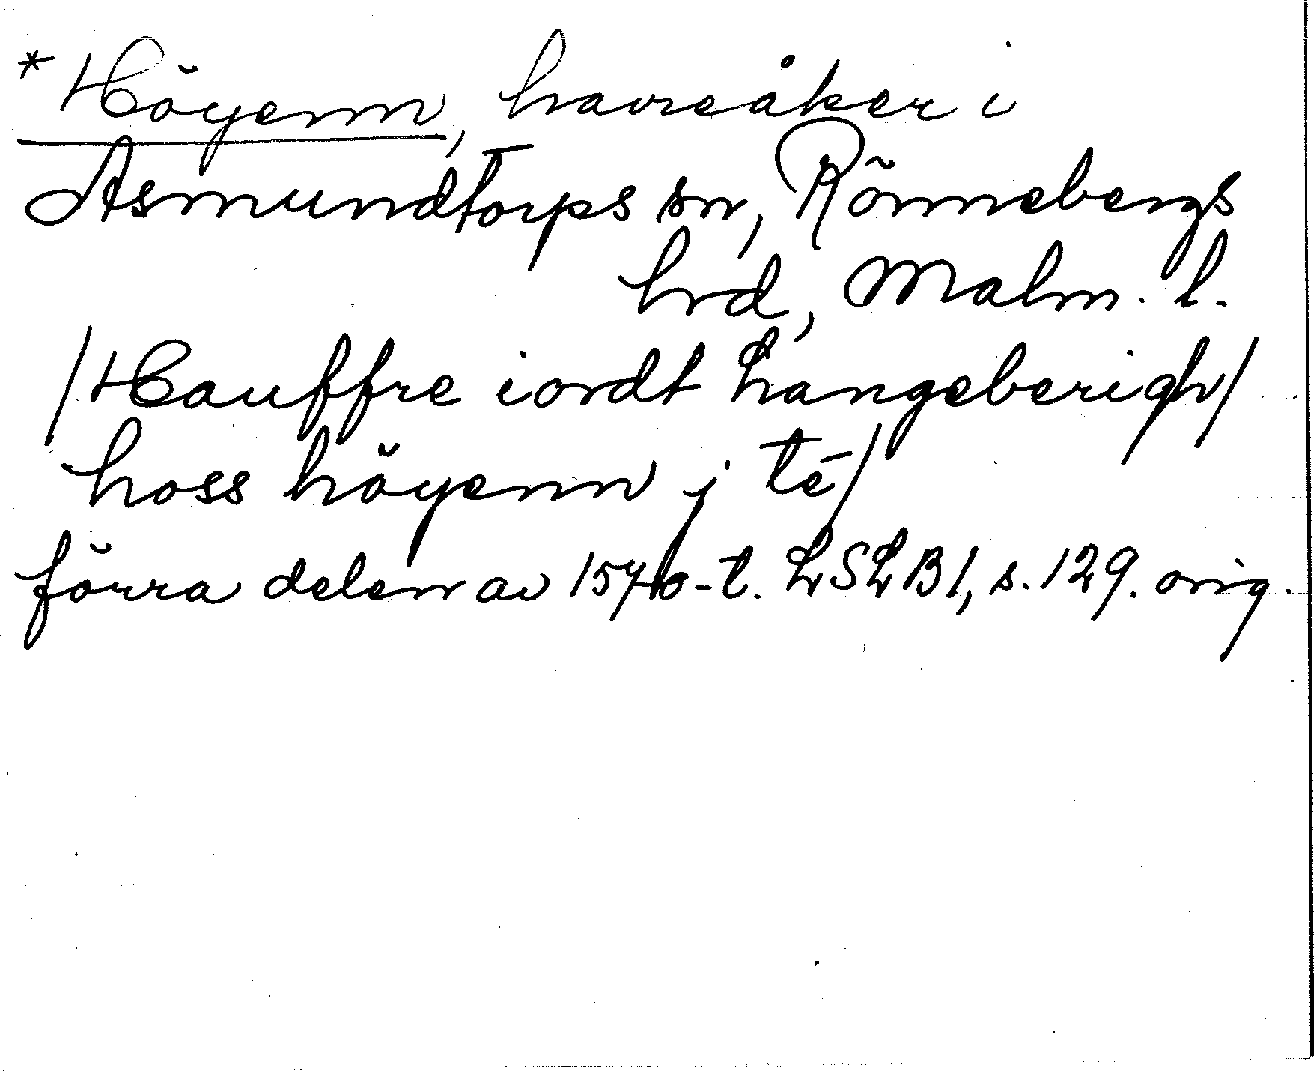 *Höyenn, havreåker i
Asmundtorps sn, Rönnebergs
hrd, Malm. l.
/Hauffre iordt hangeberigh/
hoss höyenn j té/
förra delen av 1570-t. LSLB1, s. 129. orig.